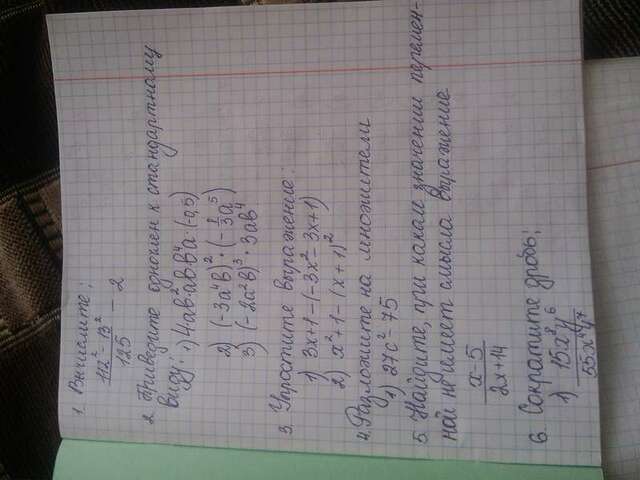 1. Вычислите:
112² - 13² / 125 - 2
2. Приведите одночлен к стандартному
виду: 1) 4ab²abb⁴a·(-0,5)
2) (-3a⁴b)²·(-1/3a⁵)
3) (-2a²b)³·3ab⁴
3. Упростите выражение:
1) 3x+1-(-3x²-3x+1)
2) x²+1-(x+1)²
4. Разложите на множители
1) 27c²-75
5. Найдите, при каком значении перемен-
ной не имеет смысла выражение
x-5 / 2x+14
6. Сократите дробь:
1) 15x⁸y⁶ / 55x⁴y⁷